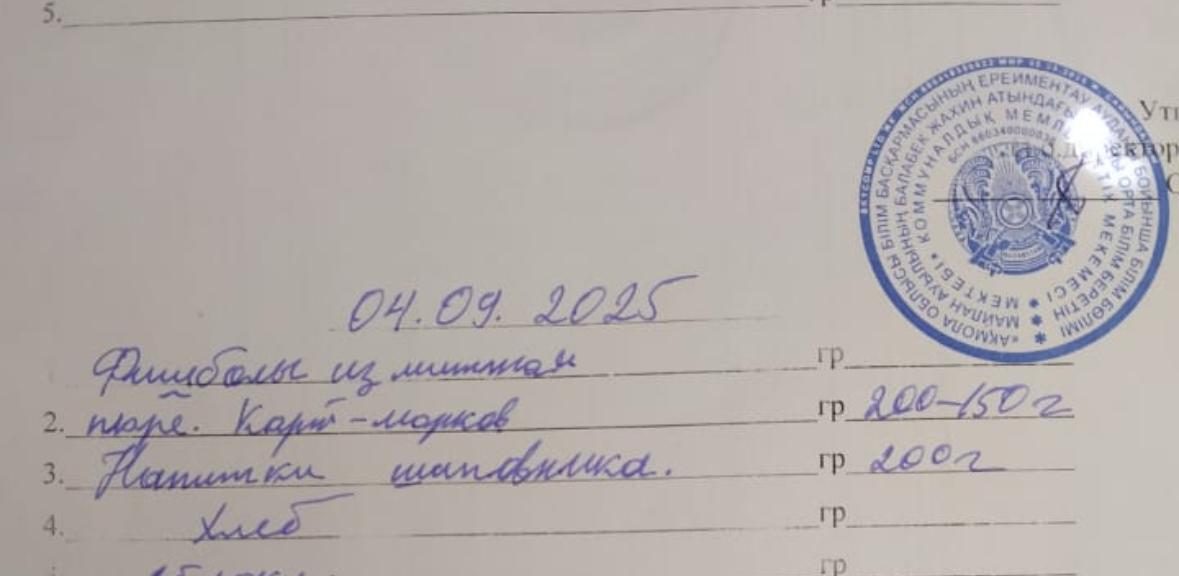 5. гр
04.09.2025
Фишболы из минтая гр
2. пюре. Карт-морков гр 200-150 г
3. Напитки шиповника. гр 200 г
4. Хлеб гр
гр
«АҚМОЛА ОБЛЫСЫ БІЛІМ БАСҚАРМАСЫНЫҢ ЕРЕЙМЕНТАУ АУДАНЫ БОЙЫНША БІЛІМ БӨЛІМІ
МАЙЛАН АУЫЛЫНЫҢ БАЛАБЕК ЖАХИН АТЫНДАҒЫ ЖАЛПЫ ОРТА БІЛІМ БЕРЕТІН
МЕКТЕБІ» КОММУНАЛДЫҚ МЕМЛЕКЕТТІК МЕКЕМЕСІ